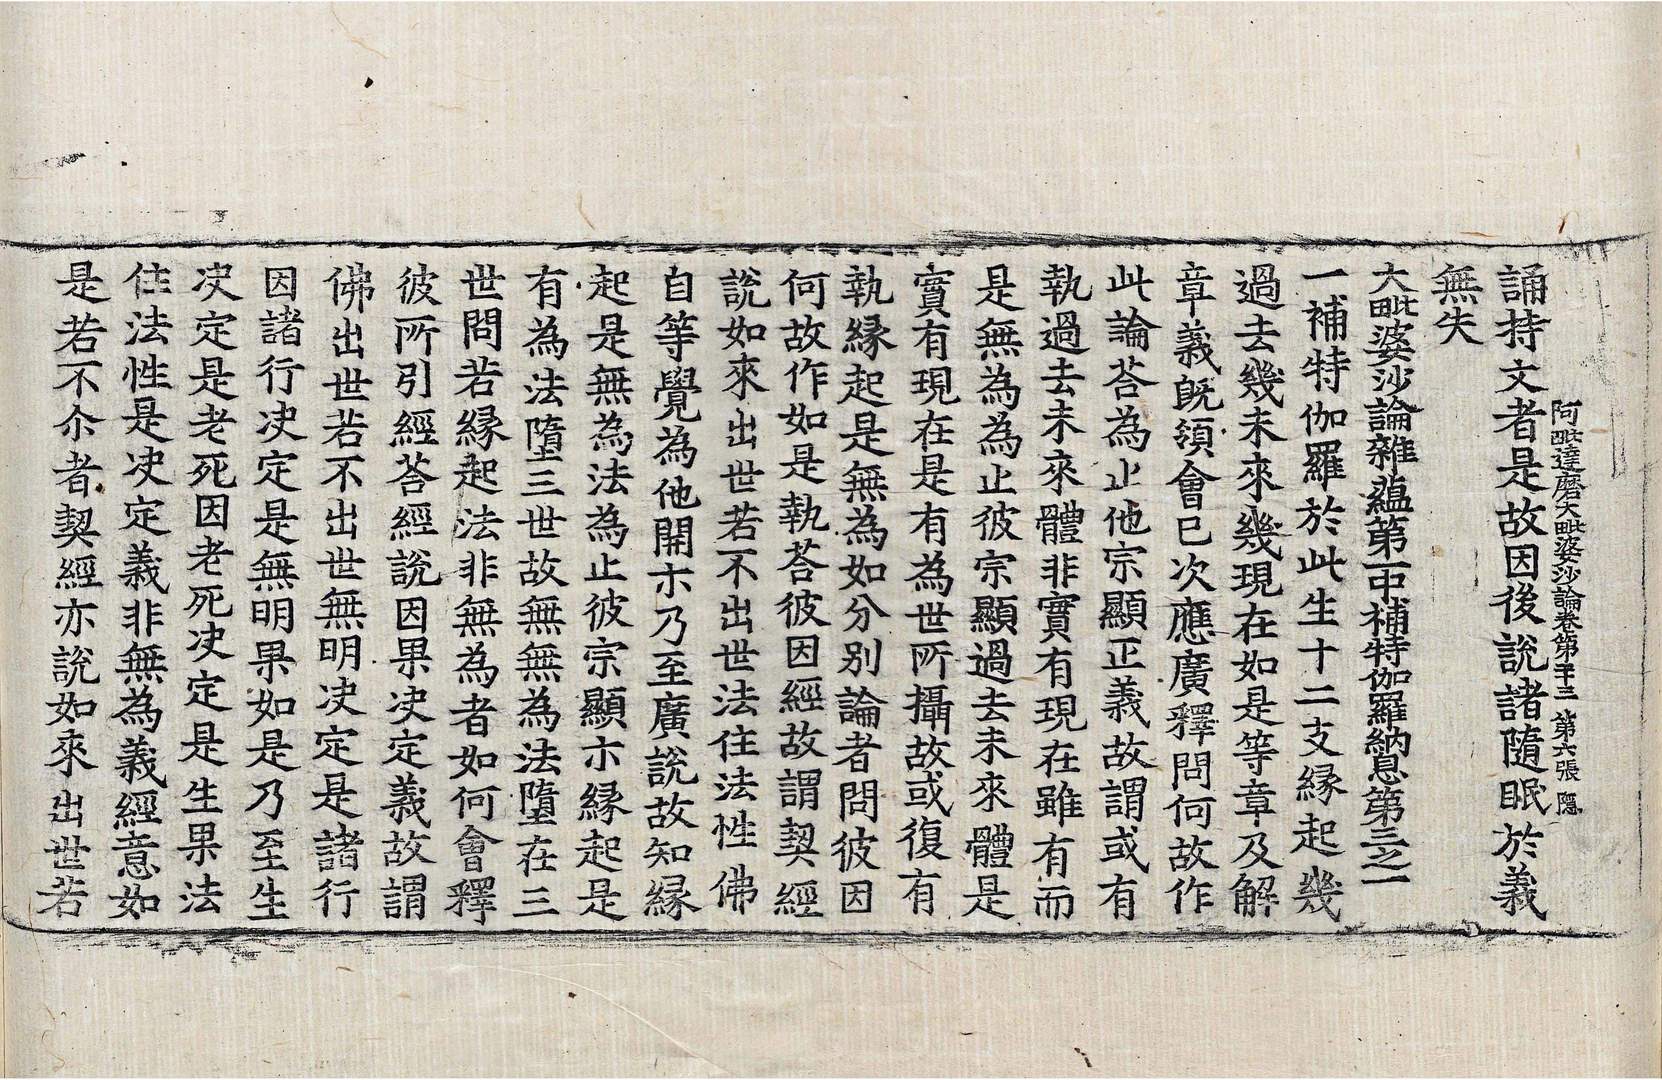 阿毗達磨大毗婆沙論卷第二十三 第六張 隱
誦持文者是故因後說諸隨眠於義
無失
大毗婆沙論雜蘊第一中補特伽羅納息第三之一
一補特伽羅於此生十二支緣起幾
過去幾未來幾現在如是等章及解
章義旣領會已次應廣釋問何故作
此論荅為止他宗顯正義故謂或有
執過去未來體非實有現在雖有而
是無為為止彼宗顯過去未來體是
實有現在是有為世所攝故或復有
執緣起是無為如分别論者問彼因
何故作如是執荅彼因經故謂契經
說如來出世若不出世法住法性佛
自等覺為他開示乃至廣說故知緣
起是無為法為止彼宗顯示緣起是
有為法墮三世故無無為法墮在三
世問若緣起法非無為者如何會釋
彼所引經荅經說因果决定義故謂
佛出世若不出世無明决定是諸行
因諸行决定是無明果如是乃至生
决定是老死因老死决定是生果法
住法性是决定義非無為義經意如
是若不尒者契經亦說如來出世若